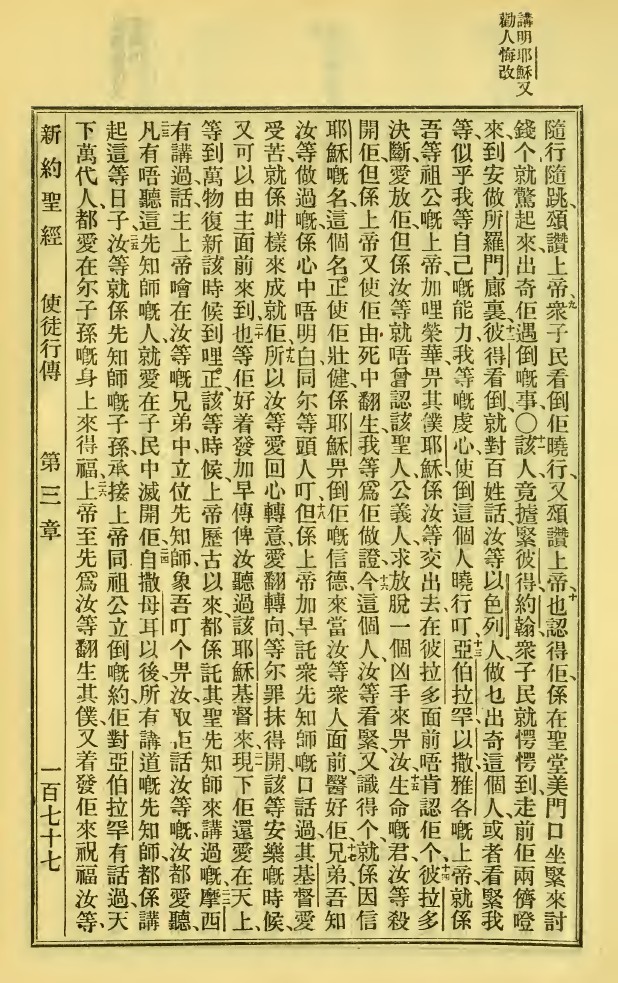 講明耶穌又
勸人悔改
隨行隨跳、頌讚上帝、九衆子民看倒佢曉行、又頌讚上帝、十也認得佢、係在聖堂美門口坐緊來討
錢个、就驚起來、出奇佢遇倒嘅事、〇十一該人竟揸緊彼得約翰、衆子民就愕愕到走前佢兩儕嶝
來、到安做所羅門廊裏、十二彼得看倒、就對百姓話、汝等以色列人、做乜出奇這個人、或者看緊我
等、似乎我等自己嘅能力、我等嘅虔心、使倒這個人曉行叮、十三亞伯拉罕、以撒、雅各嘅上帝、就係
吾等祖公嘅上帝、加哩榮華畀其僕耶穌、係汝等交出去、在彼拉多面前唔肯認佢个、十四彼拉多
決斷愛放佢、但係汝等就唔曾認該聖人公義人、求放脫一個凶手來畀汝、十五生命嘅君汝等殺
開佢、但係上帝又使佢由死中翻生、我等爲佢做證、十六今這個人、汝等看緊、又識得个、就係因信
耶穌嘅名、這個名正使佢壯健、係耶穌畀倒佢嘅信德、來當汝等衆人面前、醫好佢、十七兄弟、吾知
汝等做過嘅、係心中唔明白、同尔等頭人叮、十八但係上帝加早託衆先知師嘅口話過、其基督愛
受苦、就係咁樣來成就佢、十九所以汝等愛回心轉意、愛翻轉向、等尔罪抹得開、該等安樂嘅時候、
又可以由主面前來到、二十也等佢好着發加早傳俾汝聽過該耶穌基督來、二一現下佢還愛在天上、
等到萬物復新該時候到哩正、該等時候、上帝歷古以來、都係託其聖先知師來講過嘅、二二摩西
有講過話、主上帝噲在汝等嘅兄弟中、立位先知師、象吾叮个畀汝、取佢話汝等嘅、汝都愛聽、
二三凡有唔聽這先知師嘅人、就愛在子民中滅開佢、二四自撒母耳以後、所有講道嘅先知師、都係講
起這等日子、二五汝等就係先知師嘅子孫、承接上帝同祖公立倒嘅約、佢對亞伯拉罕有話過、天
下萬代人、都愛在尔子孫嘅身上來得福、二六上帝至先爲汝等翻生其僕、又着發佢來祝福汝等、
新約聖經 使徒行傳 第三章 一百七十七